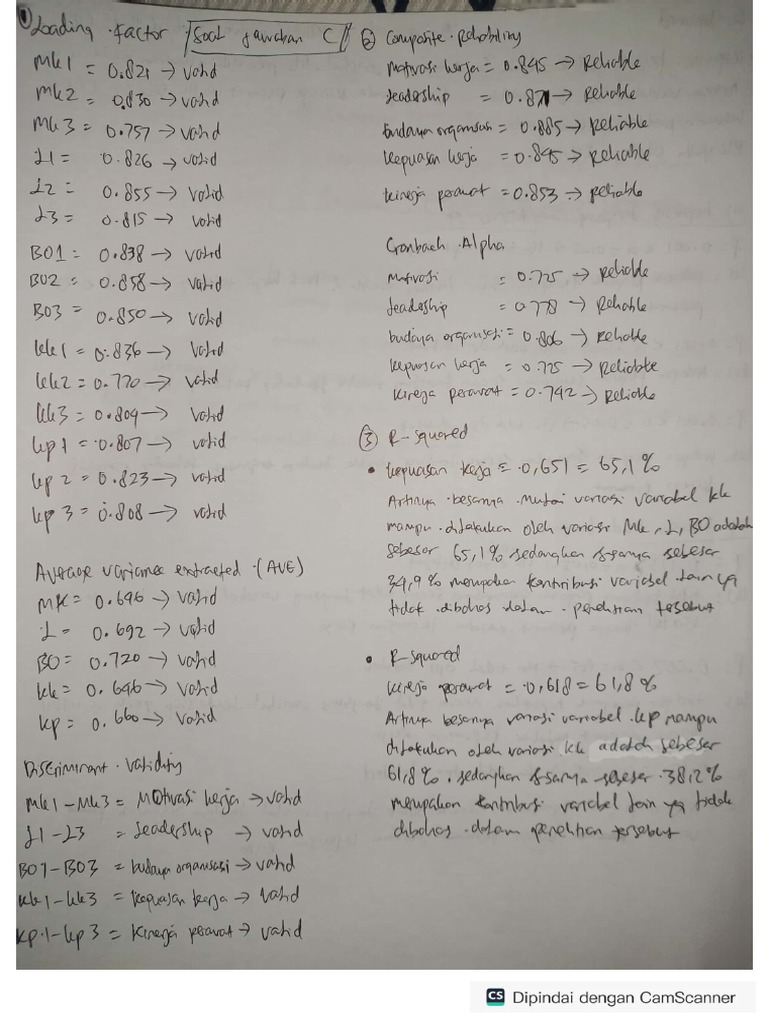 ① Loading factor
Soal jawaban C
Mk1 = 0.821 → valid
Mk2 = 0.830 → valid
Mk3 = 0.757 → valid
L1 = 0.826 → valid
L2 = 0.855 → valid
L3 = 0.815 → valid
BO1 = 0.838 → valid
BO2 = 0.858 → valid
BO3 = 0.850 → valid
kk1 = 0.836 → valid
kk2 = 0.770 → valid
kk3 = 0.809 → valid
kp1 = 0.807 → valid
kp2 = 0.823 → valid
kp3 = 0.808 → valid
Average variance extracted (AVE)
MK = 0.646 → valid
L = 0.692 → valid
BO = 0.720 → valid
kk = 0.646 → valid
kp = 0.660 → valid
Discriminant validity
Mk1 - Mk3 = Motivasi kerja → valid
L1 - L3 = Leadership → valid
BO1 - BO3 = budaya organisasi → valid
kk1 - kk3 = kepuasan kerja → valid
kp1 - kp3 = kinerja perawat → valid
② Composite Reliability
Motivasi kerja = 0.845 → Reliable
Leadership = 0.871 → Reliable
budaya organisasi = 0.885 → Reliable
kepuasan kerja = 0.845 → Reliable
kinerja perawat = 0.853 → Reliable
Cronbach Alpha
Motivasi = 0.725 → Reliable
Leadership = 0.778 → Reliable
budaya organisasi = 0.806 → Reliable
kepuasan kerja = 0.725 → Reliable
kinerja perawat = 0.742 → Reliable
③ R-squared
• kepuasan kerja = 0,651 = 65,1%
Artinya besarnya variasi variabel kk
mampu dilakukan oleh variasi Mk, L, BO adalah
sebesar 65,1% sedangkan sisanya sebesar
34,9% merupakan kontribusi variabel lain yg
tidak dibahas dalam penelitian tersebut
• R-squared
kinerja perawat = 0,618 = 61,8%
Artinya besarnya variasi variabel kp mampu
dilakukan oleh variasi kk adalah sebesar
61,8%. sedangkan sisanya sebesar 38,2%
merupakan kontribusi variabel lain yg tidak
dibahas dalam penelitian tersebut
CS Dipindai dengan CamScanner